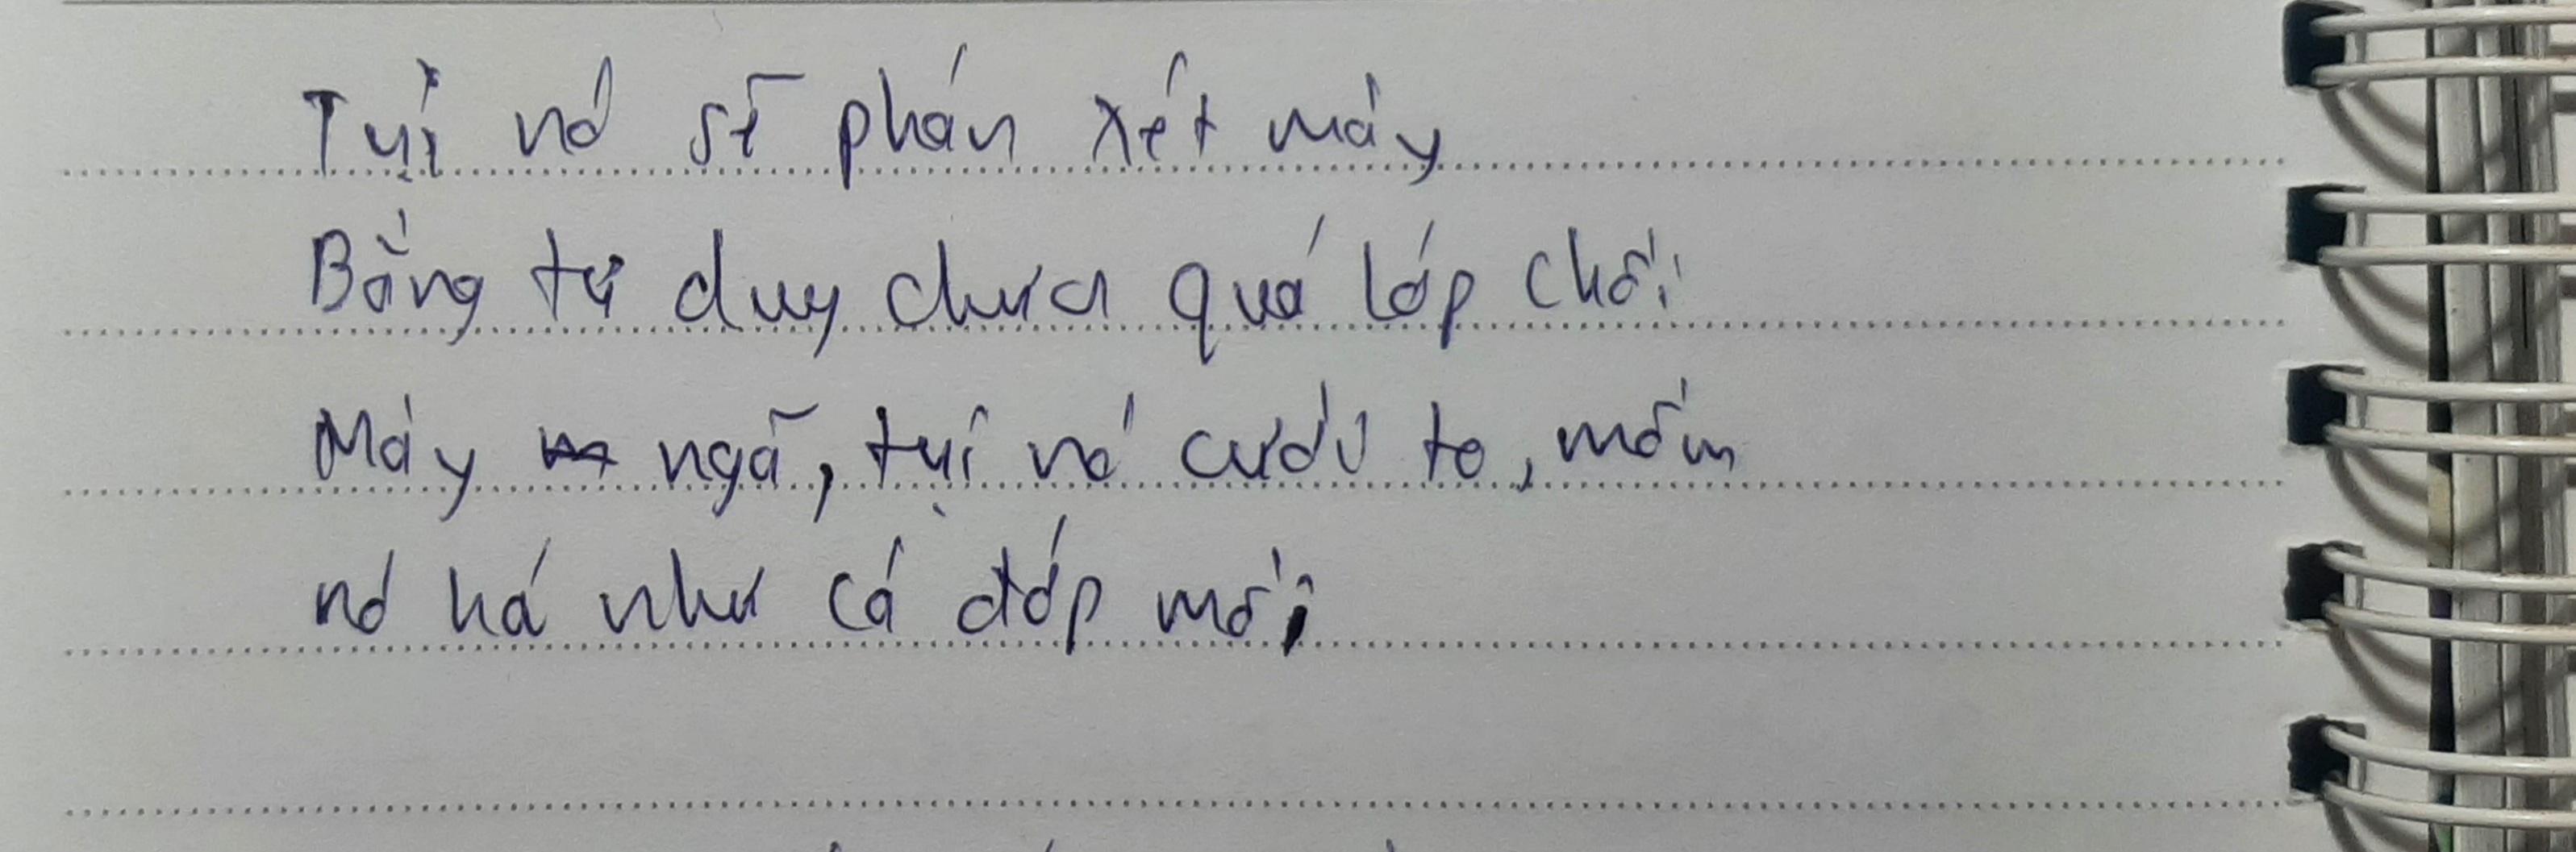 Tụi nó sẽ phán xét mày
Bằng tư duy chưa quá lớp chồi
Mày ngã, tụi nó cười to, mồm
nó há như cá đớp mồi